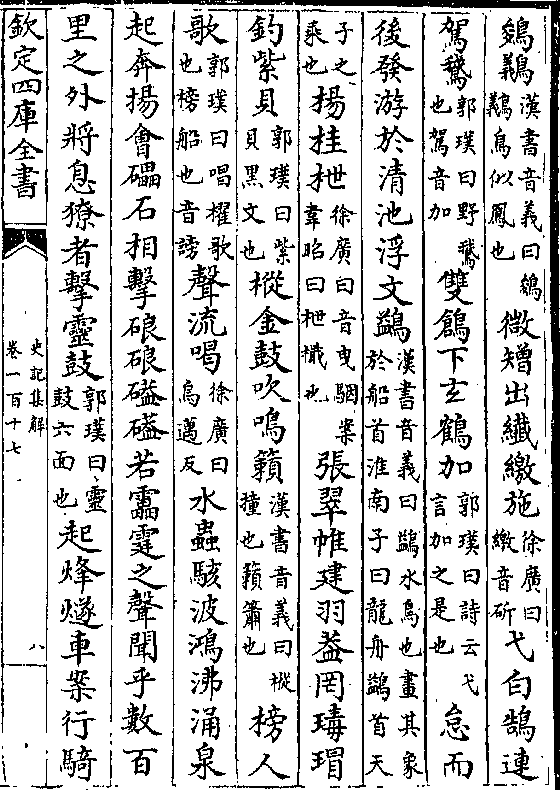 鵕鸃漢書音義曰鵕鸃鳥似鳳也微矰出纎繳施徐廣曰繳音斫弋白鵠連
駕鵞郭璞曰野鵞也駕音加雙鶬下𤣥鶴加郭璞曰詩云弋言加之是也怠而
後發游於清池浮文鷁漢書音義曰鷁水鳥也畫其象於船首淮南子曰龍舟鷁首天
子之乘也揚桂枻徐廣曰音曳駰案韋昭曰枻檝也張翠帷建羽葢罔瑇瑁
釣紫貝郭璞曰紫貝黒文也摐金鼓吹鳴籟漢書音義曰摐撞也籟簫也榜人
歌郭璞曰唱櫂歌也榜船也音謗聲流喝徐廣曰烏邁反水蟲駭波鴻沸涌泉
起奔揚㑹礧石相擊硠硠礚礚若靁霆之聲聞乎數百
里之外將息獠者擊靈鼓郭璞曰靈鼓六面也起烽燧車案行騎
欽定四庫全書
史記集解
卷一百十七
八